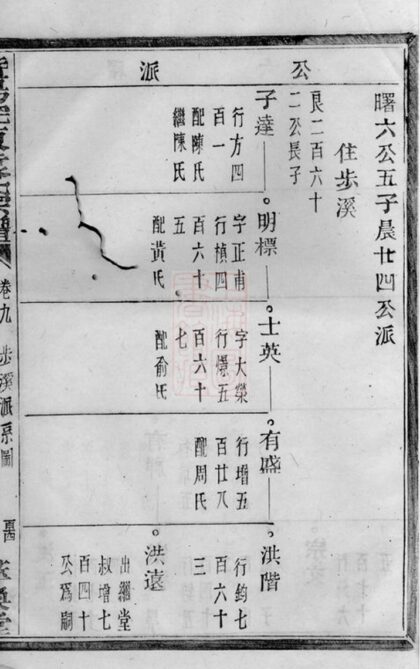 公
派
曙六公五子晨廿四公派
住步溪
良二百六十
二公長子
子達
行方四
百一
配陳氏
繼陳氏
明標
字正甫
行楨四
百六十
五
配黃氏
士英
字大榮
行㬢五
百六十
七
配俞氏
有盛
行增五
百廿八
配周氏
洪階
行鈞七
百六十
三
洪遠
出繼堂
叔增七
百四十
公爲嗣
卷九
步溪派系圖